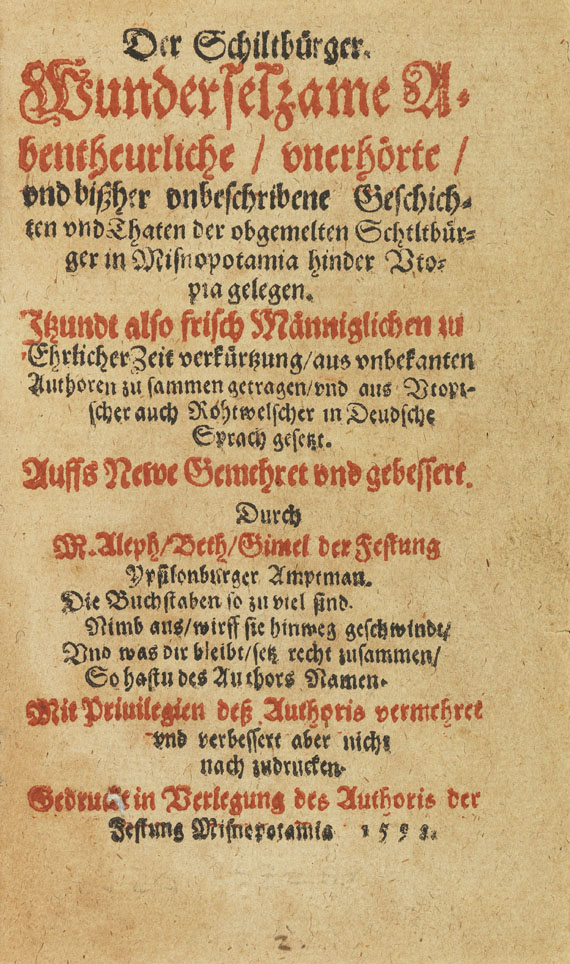 Der Schiltbürger.
Wunderselzame A-
bentheurliche / vnerhörte /
vnd bißher vnbeschribene Geschich-
ten vnd Thaten der obgemelten Schiltbür-
ger in Misnopotamia hinder Vto-
pia gelegen.
Itzundt also frisch Männiglichen zu
Ehrlicher Zeit verkürtzung / aus vnbekanten
Authoren zu sammen getragen / vnd aus Vtopi-
scher auch Röhtwelscher in Deudsche
Sprach gesetzt.
Auffs Newe Gemehret vnd gebessert.
Durch
M. Aleph / Beth / Gimel der Festung
Ypsilonburger Amptman.
Die Buchstaben so zu viel sind.
Nimb aus / wirff sie hinweg geschwindt /
Vnd was dir bleibt / setz recht zusammen /
So hastu des Authors Namen.
Mit Priuilegien deß Authoris vermehret
vnd verbessert aber nicht
nach zudrucken.
Gedruckt in Verlegung des Authoris der
Festung Misnopotamia 1598.
2